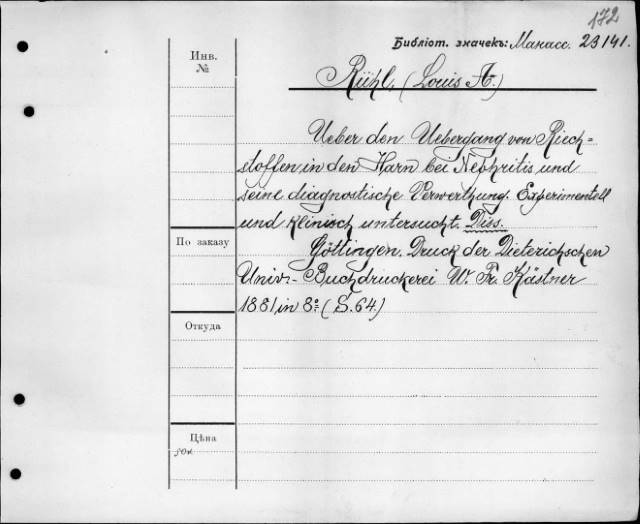 172
Библіот. значекъ: Манасс. 23141.
Инв.
№
Rühl, (Louis A.)
Ueber den Uebergang von Riech-
stoffen in den Harn bei Nephritis und
seine diagnostische Verwerthung. Experimentell
und klinisch untersucht. Diss.
По заказу
Göttingen. Druck der Dieterichschen
Univ.- Buchdruckerei W. Fr. Kästner
1881 in 8º. (S. 64.)
Откуда
Цѣна